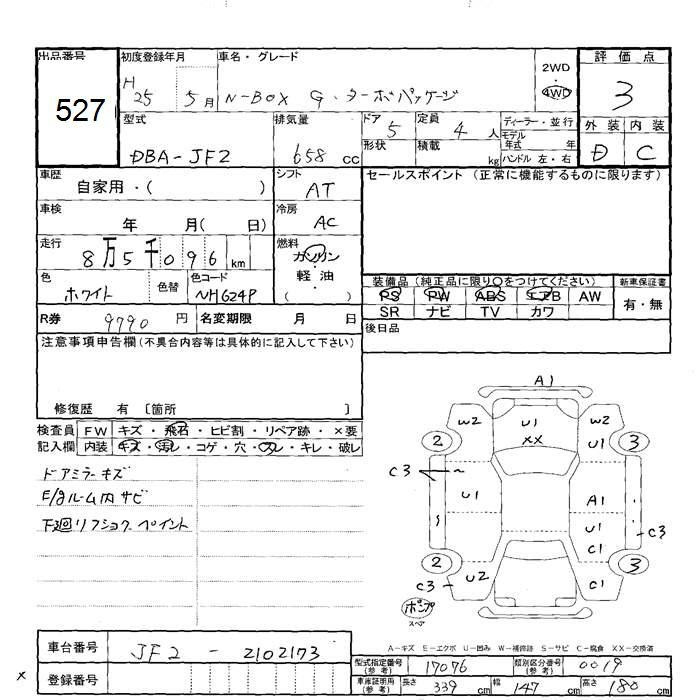 出品番号 初度登録年月 車名・グレード 評価点
527
H25 5月 N-BOX G・ターボパッケージ
2WD
・
4WD
3
型式 排気量 ドア 定員 ディーラー・並行
DBA-JF2 658 cc 5 4 人
モデル年式 年
形状 積載 kg ハンドル 左・右
外装 内装
D C
車歴 自家用・( )
シフト AT
セールスポイント (正常に機能するものに限ります)
車検 年 月( 日)
冷房 AC
走行 8万5千096 km
燃料 ガソリン・軽油・( )
色 ホワイト 色替 色コード NH624P
装備品 (純正品に限り○をつけてください) 新車保証書
PS PW ABS エアB AW 有・無
SR ナビ TV カワ
R券 9790 円 名変期限 月 日
後日品
注意事項申告欄 (不具合内容等は具体的に記入して下さい)
修復歴 有 〔箇所 〕
検査員記入欄
FW キズ・飛石・ヒビ割・リペア跡・×要
内装 キズ・汚レ・コゲ・穴・スレ・キレ・破レ
ドアミラーキズ
E/gルーム内サビ
下廻リフショク.ペイント
A1
W2 U1 W2
XX
2 U1 3
C3
U1 A1
U1
C1 C3
2 3
C3 U2 C1
ポンプ
スペア
A-キズ E-エクボ U-凹み W-補修跡 S-サビ C-腐食 XX-交換済
車台番号 JF2-2102173
登録番号
×
型式指定番号(参考) 17076 類別区分番号(参考) 0019
車庫証明用(参考) 長さ 339 cm 幅 147 cm 高さ 180 cm